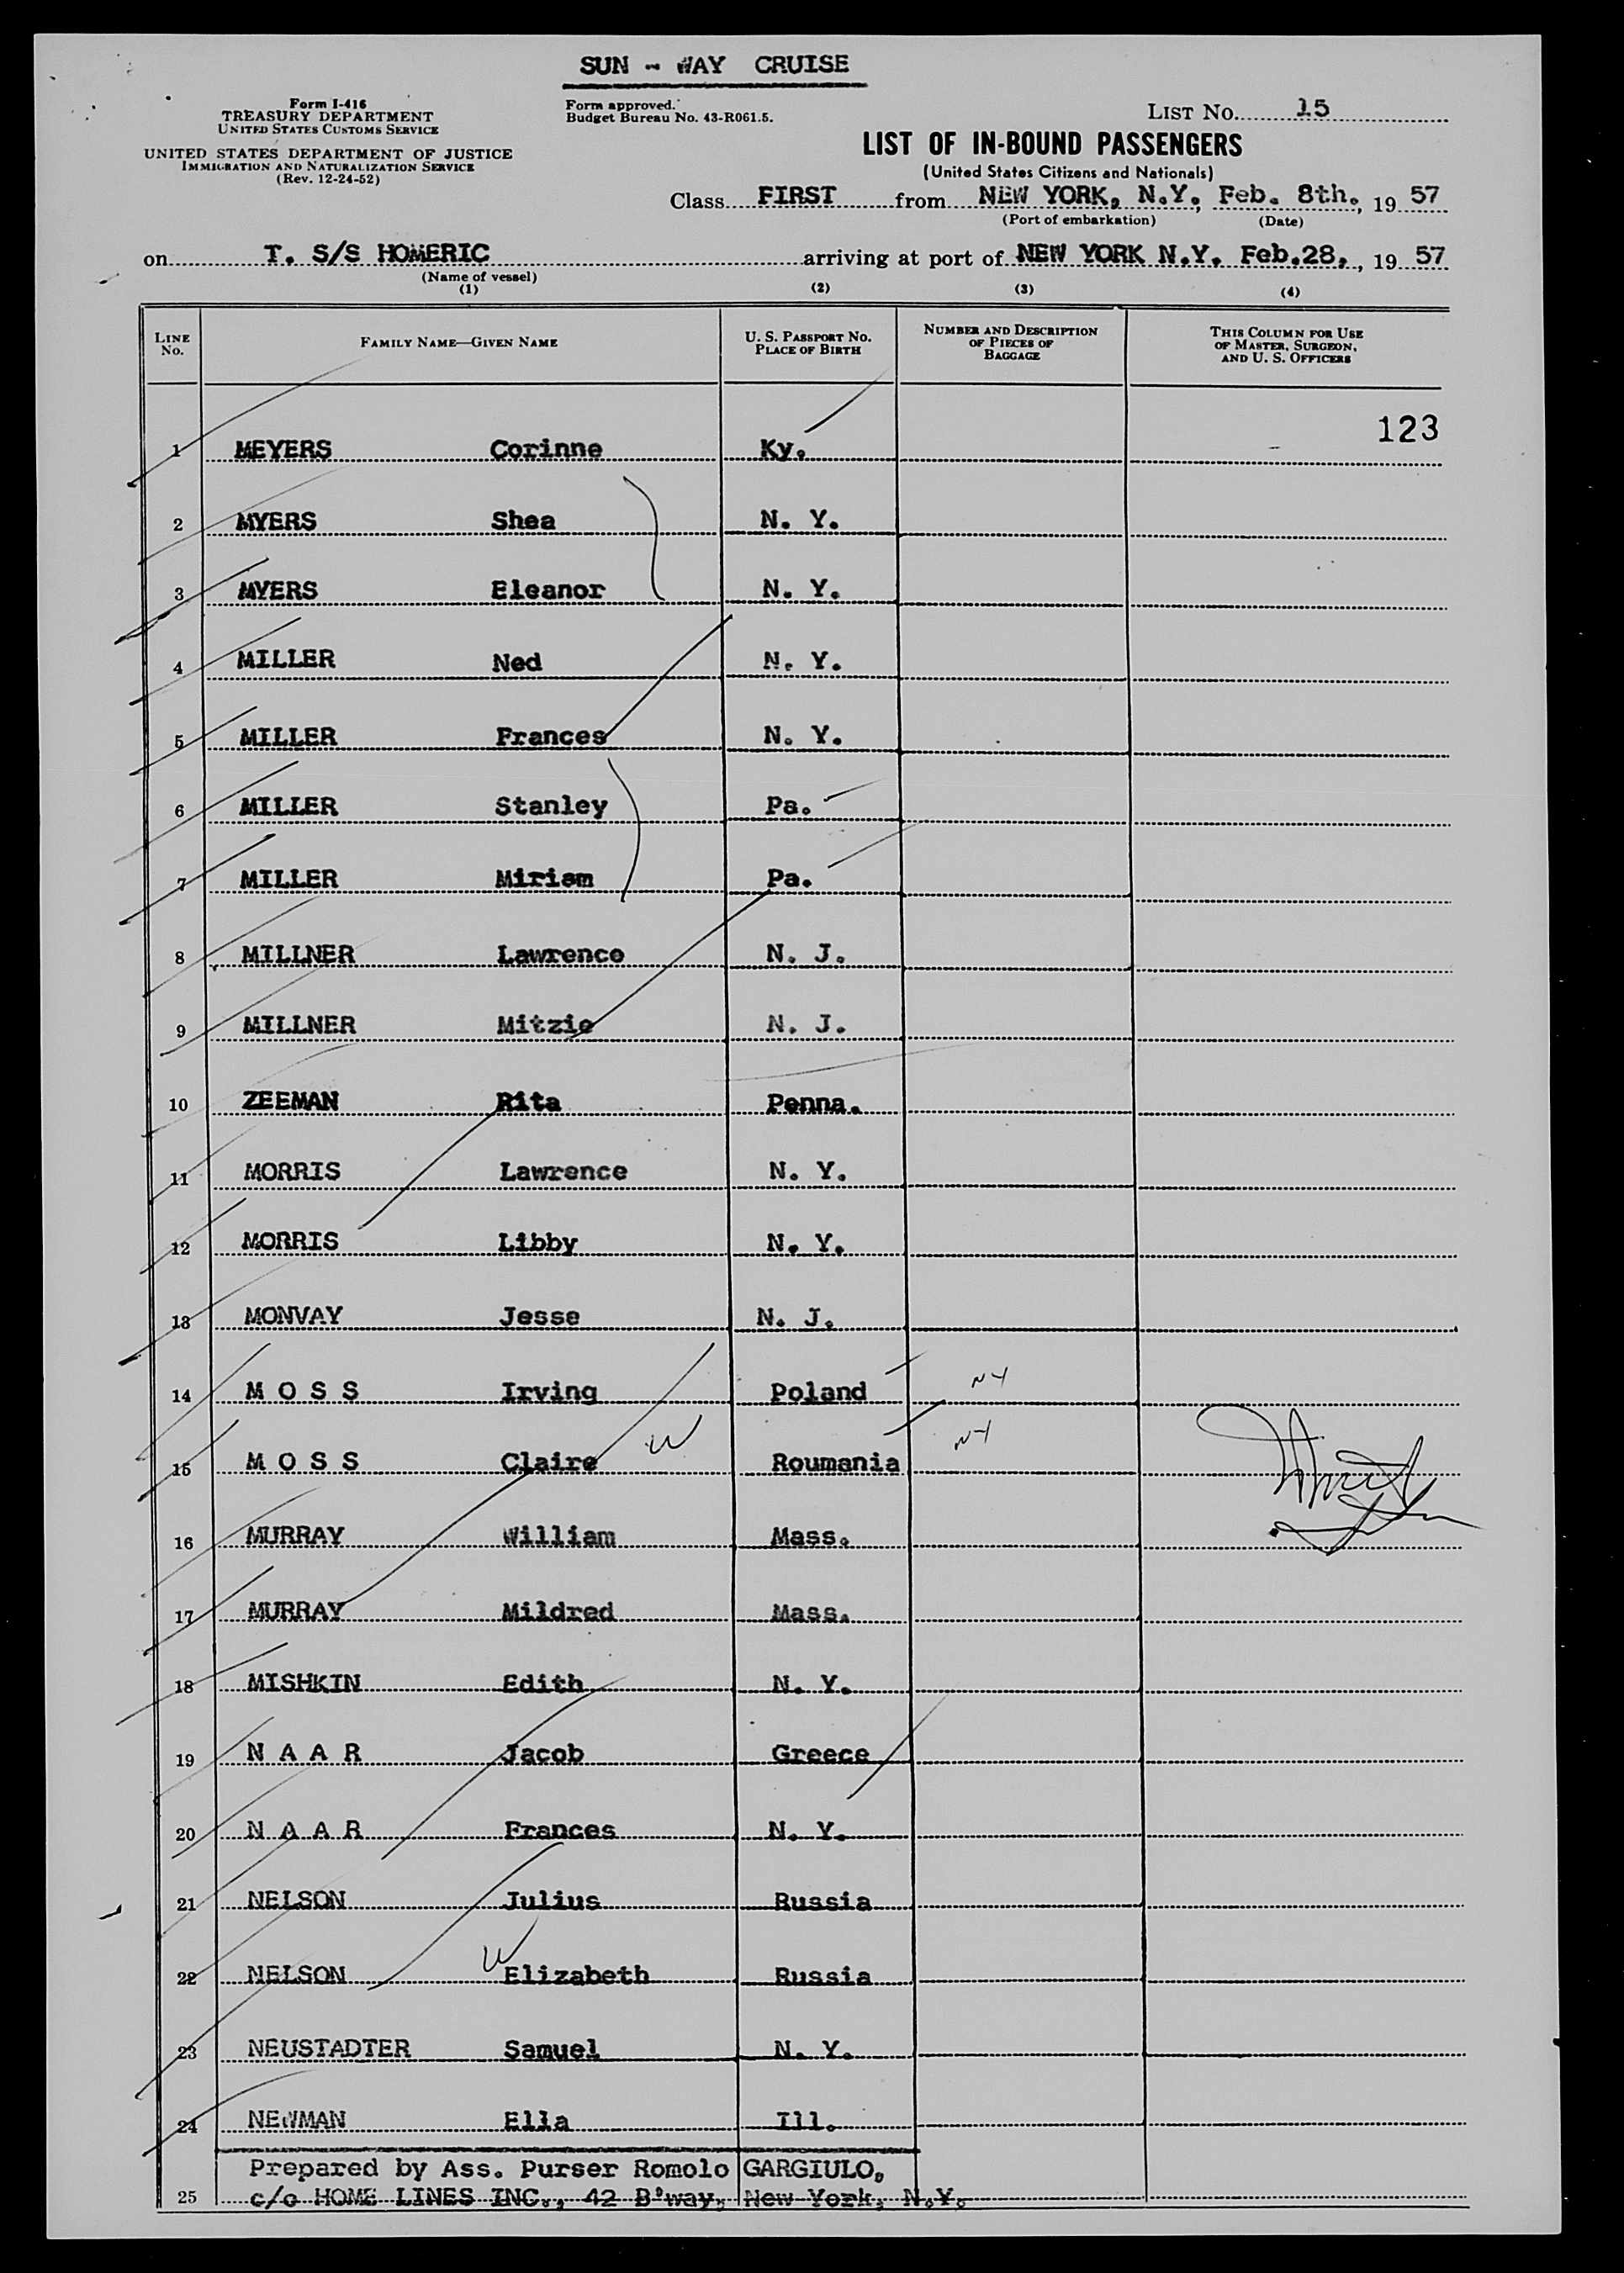 SUN - WAY CRUISE
Form I-416
TREASURY DEPARTMENT
UNITED STATES CUSTOMS SERVICE
UNITED STATES DEPARTMENT OF JUSTICE
IMMIGRATION AND NATURALIZATION SERVICE
(Rev. 12-24-52)
Form approved.
Budget Bureau No. 43-R061.5.
LIST No. 15
LIST OF IN-BOUND PASSENGERS
(United States Citizens and Nationals)
Class FIRST from NEW YORK, N.Y, Feb. 8th., 19 57
(Port of embarkation) (Date)
on T. S/S HOMERIC arriving at port of NEW YORK N.Y. Feb.28, , 19 57
(Name of vessel)
(1) (2) (3) (4)
LINE No. FAMILY NAME—GIVEN NAME U. S. PASSPORT No. PLACE OF BIRTH NUMBER AND DESCRIPTION OF PIECES OF BAGGAGE THIS COLUMN FOR USE OF MASTER, SURGEON, AND U. S. OFFICERS
123
1 MEYERS Corinne Ky.
2 MYERS Shea N. Y.
3 MYERS Eleanor N. Y.
4 MILLER Ned N. Y.
5 MILLER Frances N. Y.
6 MILLER Stanley Pa.
7 MILLER Miriam Pa.
8 MILLNER Lawrence N. J.
9 MILLNER Mitzie N. J.
10 ZEEMAN Rita Penna.
11 MORRIS Lawrence N. Y.
12 MORRIS Libby N. Y.
13 MONVAY Jesse N. J.
14 M O S S Irving Poland NY
15 M O S S Claire W Roumania NY
16 MURRAY William Mass.
17 MURRAY Mildred Mass.
18 MISHKIN Edith N. Y.
19 N A A R Jacob Greece
20 N A A R Frances N. Y.
21 NELSON Julius Russia
22 NELSON W Elizabeth Russia
23 NEUSTADTER Samuel N. Y.
24 NEWMAN Ella Ill.
Prepared by Ass. Purser Romolo GARGIULO,
25 c/o HOME LINES INC., 42 B'way, New York, N.Y.